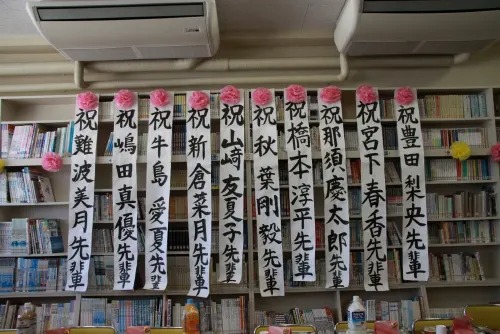 祝難波美月先輩
祝嶋田真優先輩
祝牛島愛夏先輩
祝新倉菜月先輩
祝山崎友夏子先輩
祝秋葉剛毅先輩
祝橋本淳平先輩
祝那須慶太郎先輩
祝宮下春香先輩
祝豊田梨央先輩